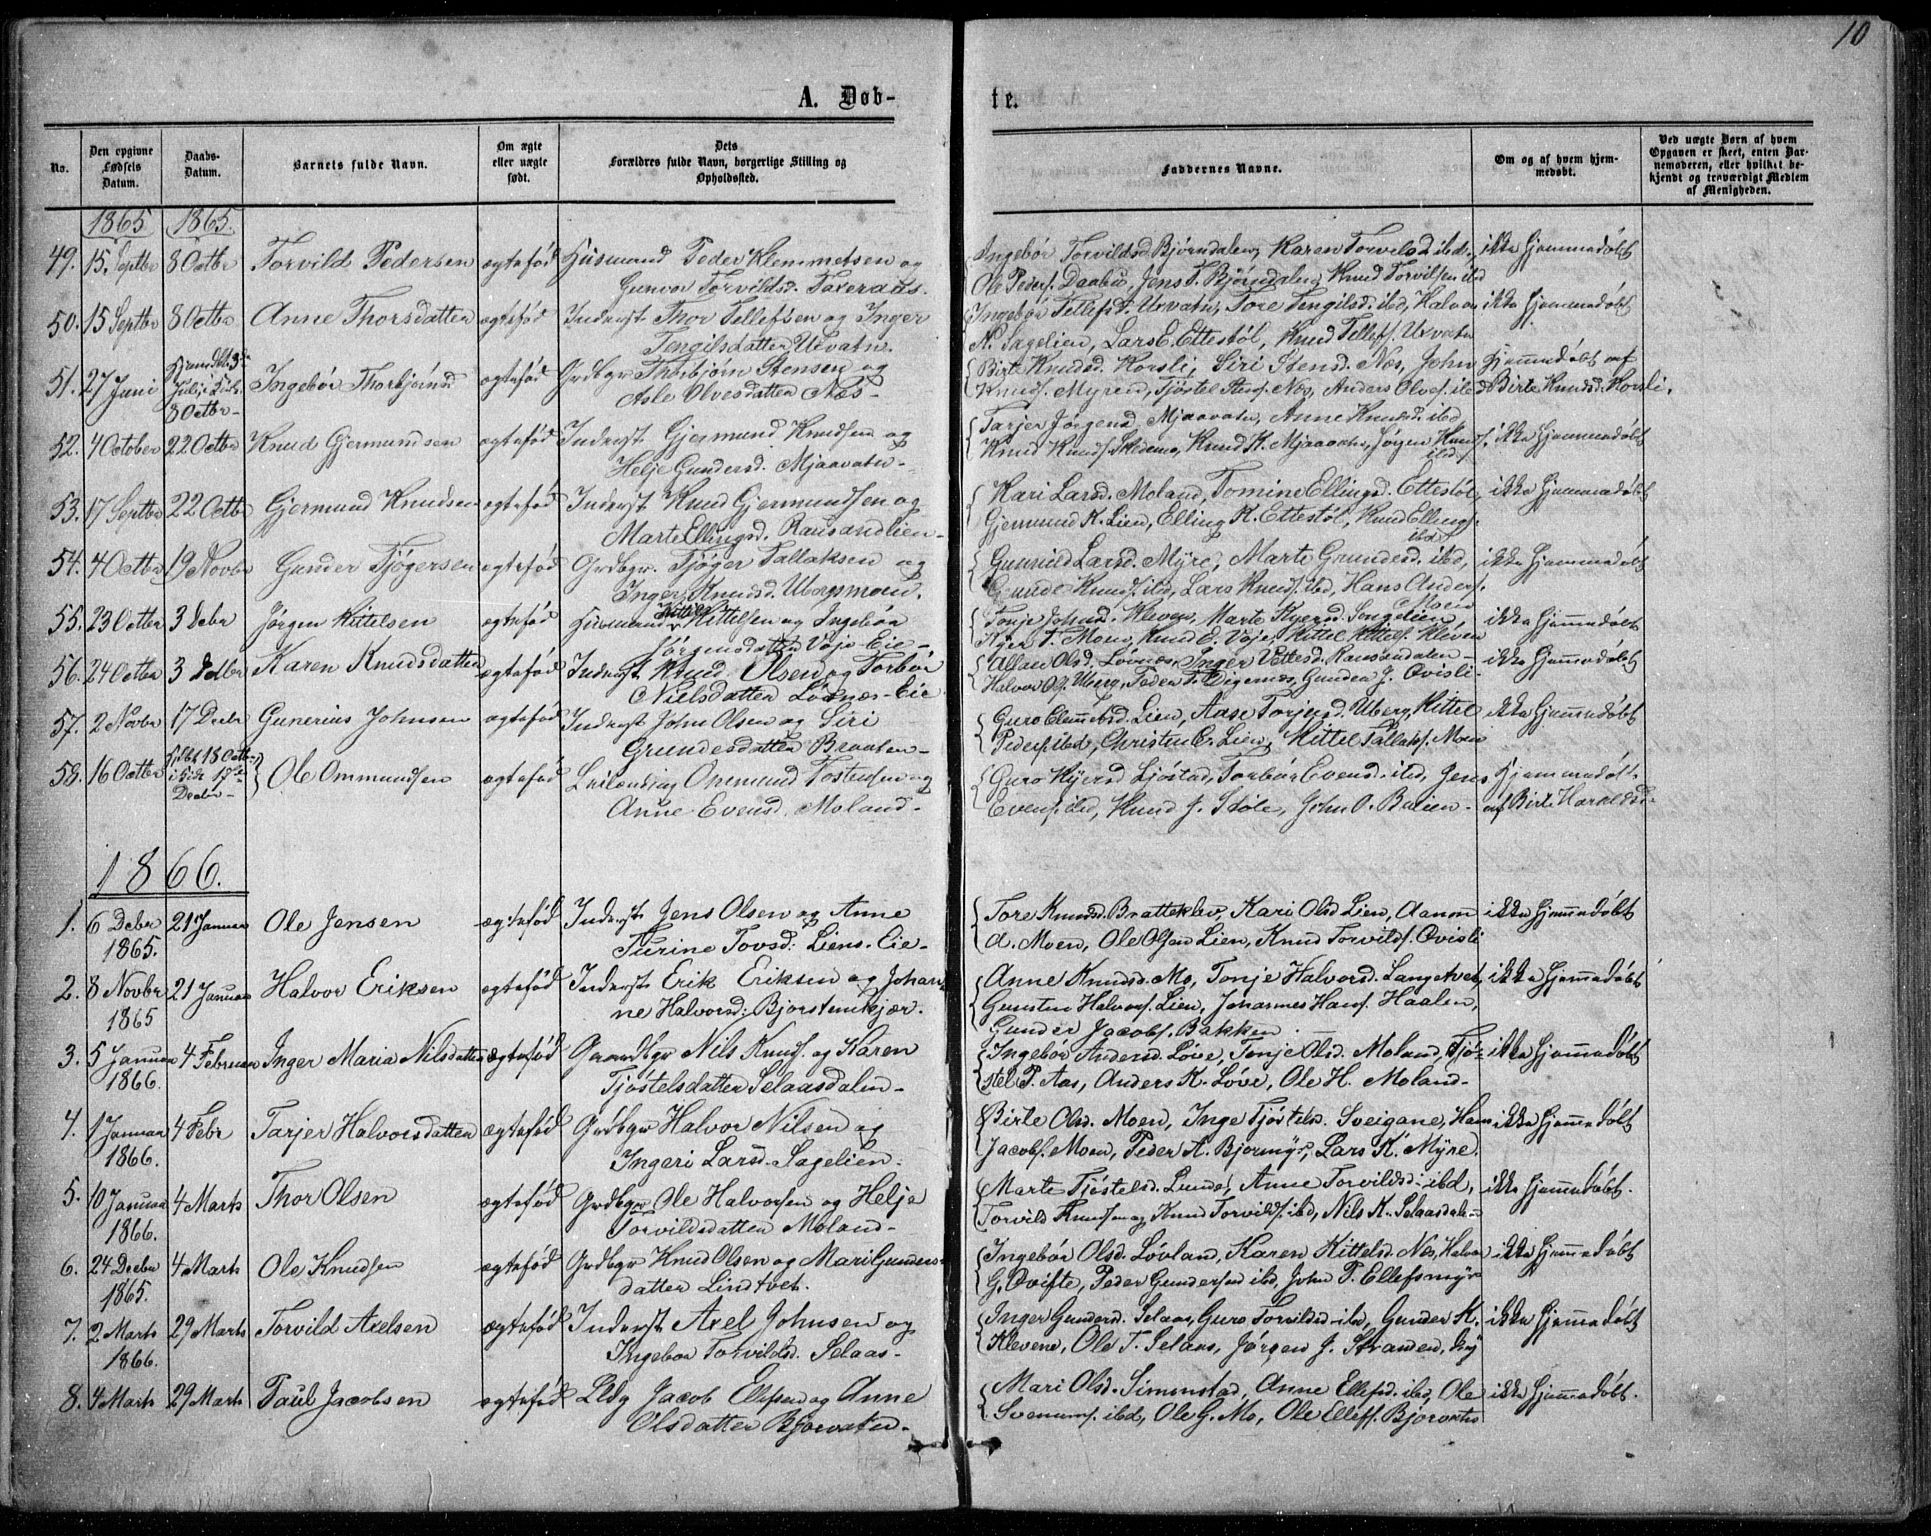 10
A. Døb-
te.
No.
Den opgivne Fødsels Datum.
Daabs-Datum.
Barnets fulde Navn.
Om ægte eller uægte født.
Dets Forældres fulde Navn, borgerlige Stilling og Opholdssted.
Faddernes Navne.
Om og af hvem hjemmedøbt.
Ved uægte Børn af hvem Opgaven er skeet, enten Barnemoderen, eller hvilket bekjendt og troværdigt Medlem af Menigheden.
1865 1865.
49. 15. Septbr 8 Octbr Torvild Pedersen ægtefød Husmand Peder Klemmetsen og
Gunvor Torvildsd. Taxeraas.
Ingebór Torvildsd. Bjórndalen, Karen Torvilsd. ibd., ikke hjemmedøbt
Ole Peders. Daabu, Jens T. Bjórndalen, Knud Torvilsen ibd
50. 15 Septbr 8 Octbr Anne Thorsdatter ægtefød Inderst Thor Tellefsen og Inger
Tengilsdatter Urvatn.
Ingebór Tellefsd. Urvatn, Tore Tengilsd. ibd, Halvor ikke hjemmedøbt
N. Sagelien, Lars E. Ettestól, Knud Tellefs. Urvatn
51. 27 Juni Hjemdøbt 3die Julii i Kirk. 8 Octbr Ingebór Thorbjórnsd ægtefød Grdbgr Thorbjørn Stensen og
Asle Olvesdatter Næs
Birte Knudsd. Horsli, Siri Stensd. Næs, John hjemmedøbt af
Knuds. Myren, Tjøstel Stens. Næs, Anders Olves. ibd Birte Knudsd. Horsli.
52. 4 October 22 Octbr Knud Gjermundsen ægtefød Inderst Gjermund Knudsen og
Helje Gundersd. Mjaavatn
Tarjer Jørgensd. Mjaavatn, Anne Knudsd. ibd
Knud Knuds. Skedsmo, Knud K. Mjaavatn, Jørgen Knuds. ibd ikke hjemmedøbt
53. 17 Septbr 22 Octbr Gjermund Knudsen ægtefød Inderst Knud Gjermundsen og
Marte Ellingsd. Rausandlien
Kari Larsd. Moland, Tomine Ellingsd. Ettestól, ikke hjemmedøbt
Gjermund K. Lien, Elling K. Ettestól, Knud Ellings. ibd
54. 4 Octbr 19 Novbr Gunder Tjógersen ægtefød Grdbgr. Tjóger Tallaksen og
Inger Knudsd. Ubergsmoen.
Gunnild Larsd. Myre, Marte Grundesd. ibd, ikke hjemmedøbt
Grunde Knuds. ibd, Lars Knuds. ibd, Hans Anders. Moen
55. 23 Octbr 3 Debr Jørgen Kittelsen ægtefød Husmand Kittel Kittelsen og Ingebór
Jørgensdatter Vøje Eie
Tonje Johnsd. Kleven, Marte Kyersd. Songelien ikke hjemmedøbt
Kjer T. Moen, Knud O. Vøje, Kittel Kittels. Kleven
56. 24 Octbr 3 Debr Karen Knudsdatter ægtefød Inderst Knud Olsen og Torbór
Nielsdatter Løvnæs Eie
Allau Olsd. Løvnæs, Inger Vettesd. Rausandalen ikke hjemmedøbt
Halvor Os. Uberg, Peder T. Eigenæs, Gunder J. Ovisli
57. 2 Novbr 17 Decbr Gunerius Johnsen ægtefød Inderst John Olsen og Siri
Grundesdatter Braaten
Guro Clemmetsd. Lien, Aase Torjersd. Uberg, Kittel ikke hjemmedøbt
Peders. ibd, Christen C. Lien, Kittel Tallaks. Moen
58. 16 Octbr Hjdbt 18 Octbr i Kirk 17de Decbr Ole Ommundsen ægtefød Leilænding Ommund Tostensen og
Anne Evensd. Moland
Guro Kjersd. Ljóstad, Torbór Evensd. ibd, Jens hjemmedøbt
Evens. ibd, Knud J. Stóle, John O. Balien af Birte Haraldsd.
1866.
1. 6 Debr 1865. 21 Januar Ole Jensen ægtefød Inderst Jens Olsen og Anne
Turine Tovsd: Liens Eie
Tore Knudsd. Bratteklev, Kari Olsd. Lien, Aanon ikke hjemmedøbt
A. Moen, Ole Olsen Lien, Knud Torvilds. Ovisli
2. 8 Novbr 1865 21 Januar Halvor Eriksen ægtefød Inderst Erik Eriksen og Johan
ne Halvorsd: Bjorstemkjær.
Anne Knudsd. Mo, Tonje Halvorsd. Langetvet, ikke hjemmedøbt
Gunsten Halvors. Lien, Johannes Hans. Haalen,
Gunder Jacobs. Bakken.
3. 5 Januar 1866. 4 Februar Inger Maria Nilsdatter ægtefød Gaardbgr Nils Knuds. og Karen
Tjøstelsdatter Selaasdalen
Ingebór Andersd. Løve, Tonje Olsd. Moland, Tjó- ikke hjemmedøbt
stel P. Aas, Anders K. Løve, Ole H. Moland
4. 1 Januar 1866. 4 Febr Tarjer Halvorsdatter ægtefød Grdbgr Halvor Nilsen og
Ingeri Larsd. Sagelien.
Birte Olsd. Moen, Inge Tjøstelsd. Sveigane, Hans ikke hjemmedøbt
Jacobs. Moen, Peder A. Bjormyr, Lars K. Myre.
5. 10 Januar 1866. 4 Marts Thor Olsen ægtefød Grdbgr Ole Halvorsen og Helje
Torvildsdatter Moland
Marte Tjøstelsd. Lunde, Anne Torvildsd. ibd, ikke hjemmedøbt.
Torvild Knudsen og Knud Torvilds. ibd, Nils K. Selaasdalen
6. 24 Decbr 1865. 4 Marts Ole Knudsen ægtefød Grdbgr Knud Olsen og Mari Gunders
datter Lindtvet.
Ingebór Olsd. Løvland, Karen Kittelsd. Næs, Halvor ikke hjemmedøbt
G. Ovifte, Peder Gundersen ibd, John P. Ellefsmyr
7. 2 Marts 1866. 29 Marts Torvild Axelsen ægtefød Inderst Axel Johnsen og
Ingebor Torvildsd. Selaas
Inger Gundersd. Selaas, Guro Torvildsd. ibd, Gunder K. ikke hjemmedøbt
Klevene, Ole T. Selaas, Jørgen J. Stranden,
8. 4 Marts 29 Marts Paul Jacobsen ægtefød Lldg Jacob Ellefsen og Anne
Olsdatter Bjorvatn
Mari Olsd. Simonstad, Anne Ellefsd. ibd, Ole ikke hjemmedøbt.
Svenuns. ibd, Ole G. Mo, Ole Ellefs. Bjorvatn